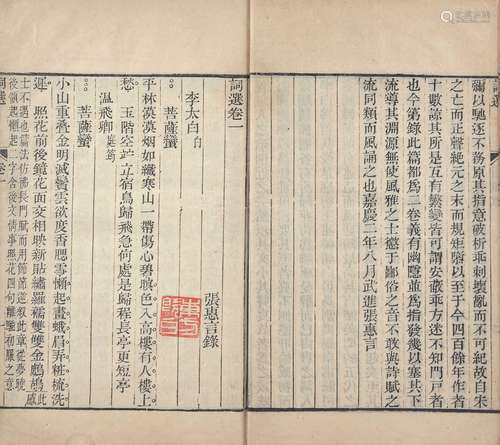 詞選
彌以馳逐不務原其指意破析乖刺壞亂而不可紀故自宋
之亡而正聲絕元之末而規矩隳以至于今四百餘年作者
十數諒其所是互有繁變皆可謂安蔽乖方迷不知門戶者
也今第錄此篇都為二卷義有幽隱並為指發幾以塞其下
流導其淵源無使風雅之士懲于鄙俗之音不敢與詩賦之
流同類而風誦之也嘉慶二年八月武進張惠言
詞選卷一
張惠言錄
李太白 白
菩薩蠻
平林漠漠烟如織寒山一帶傷心碧暝色入高樓有人樓上
愁 玉階空竚立宿鳥歸飛急何處是歸程長亭更短亭
溫飛卿 庭筠
菩薩蠻
小山重疊金明滅鬢雲欲度香腮雪懶起畫蛾眉弄粧梳洗
遲 照花前後鏡花面交相映新貼繡羅襦雙雙金鷓鴣 此感
士不遇也篇法仿佛長門賦而用節節逆叙此章從夢曉
後領起懶起二字含後文情事照花四句離騷初服之意
詞選 卷一